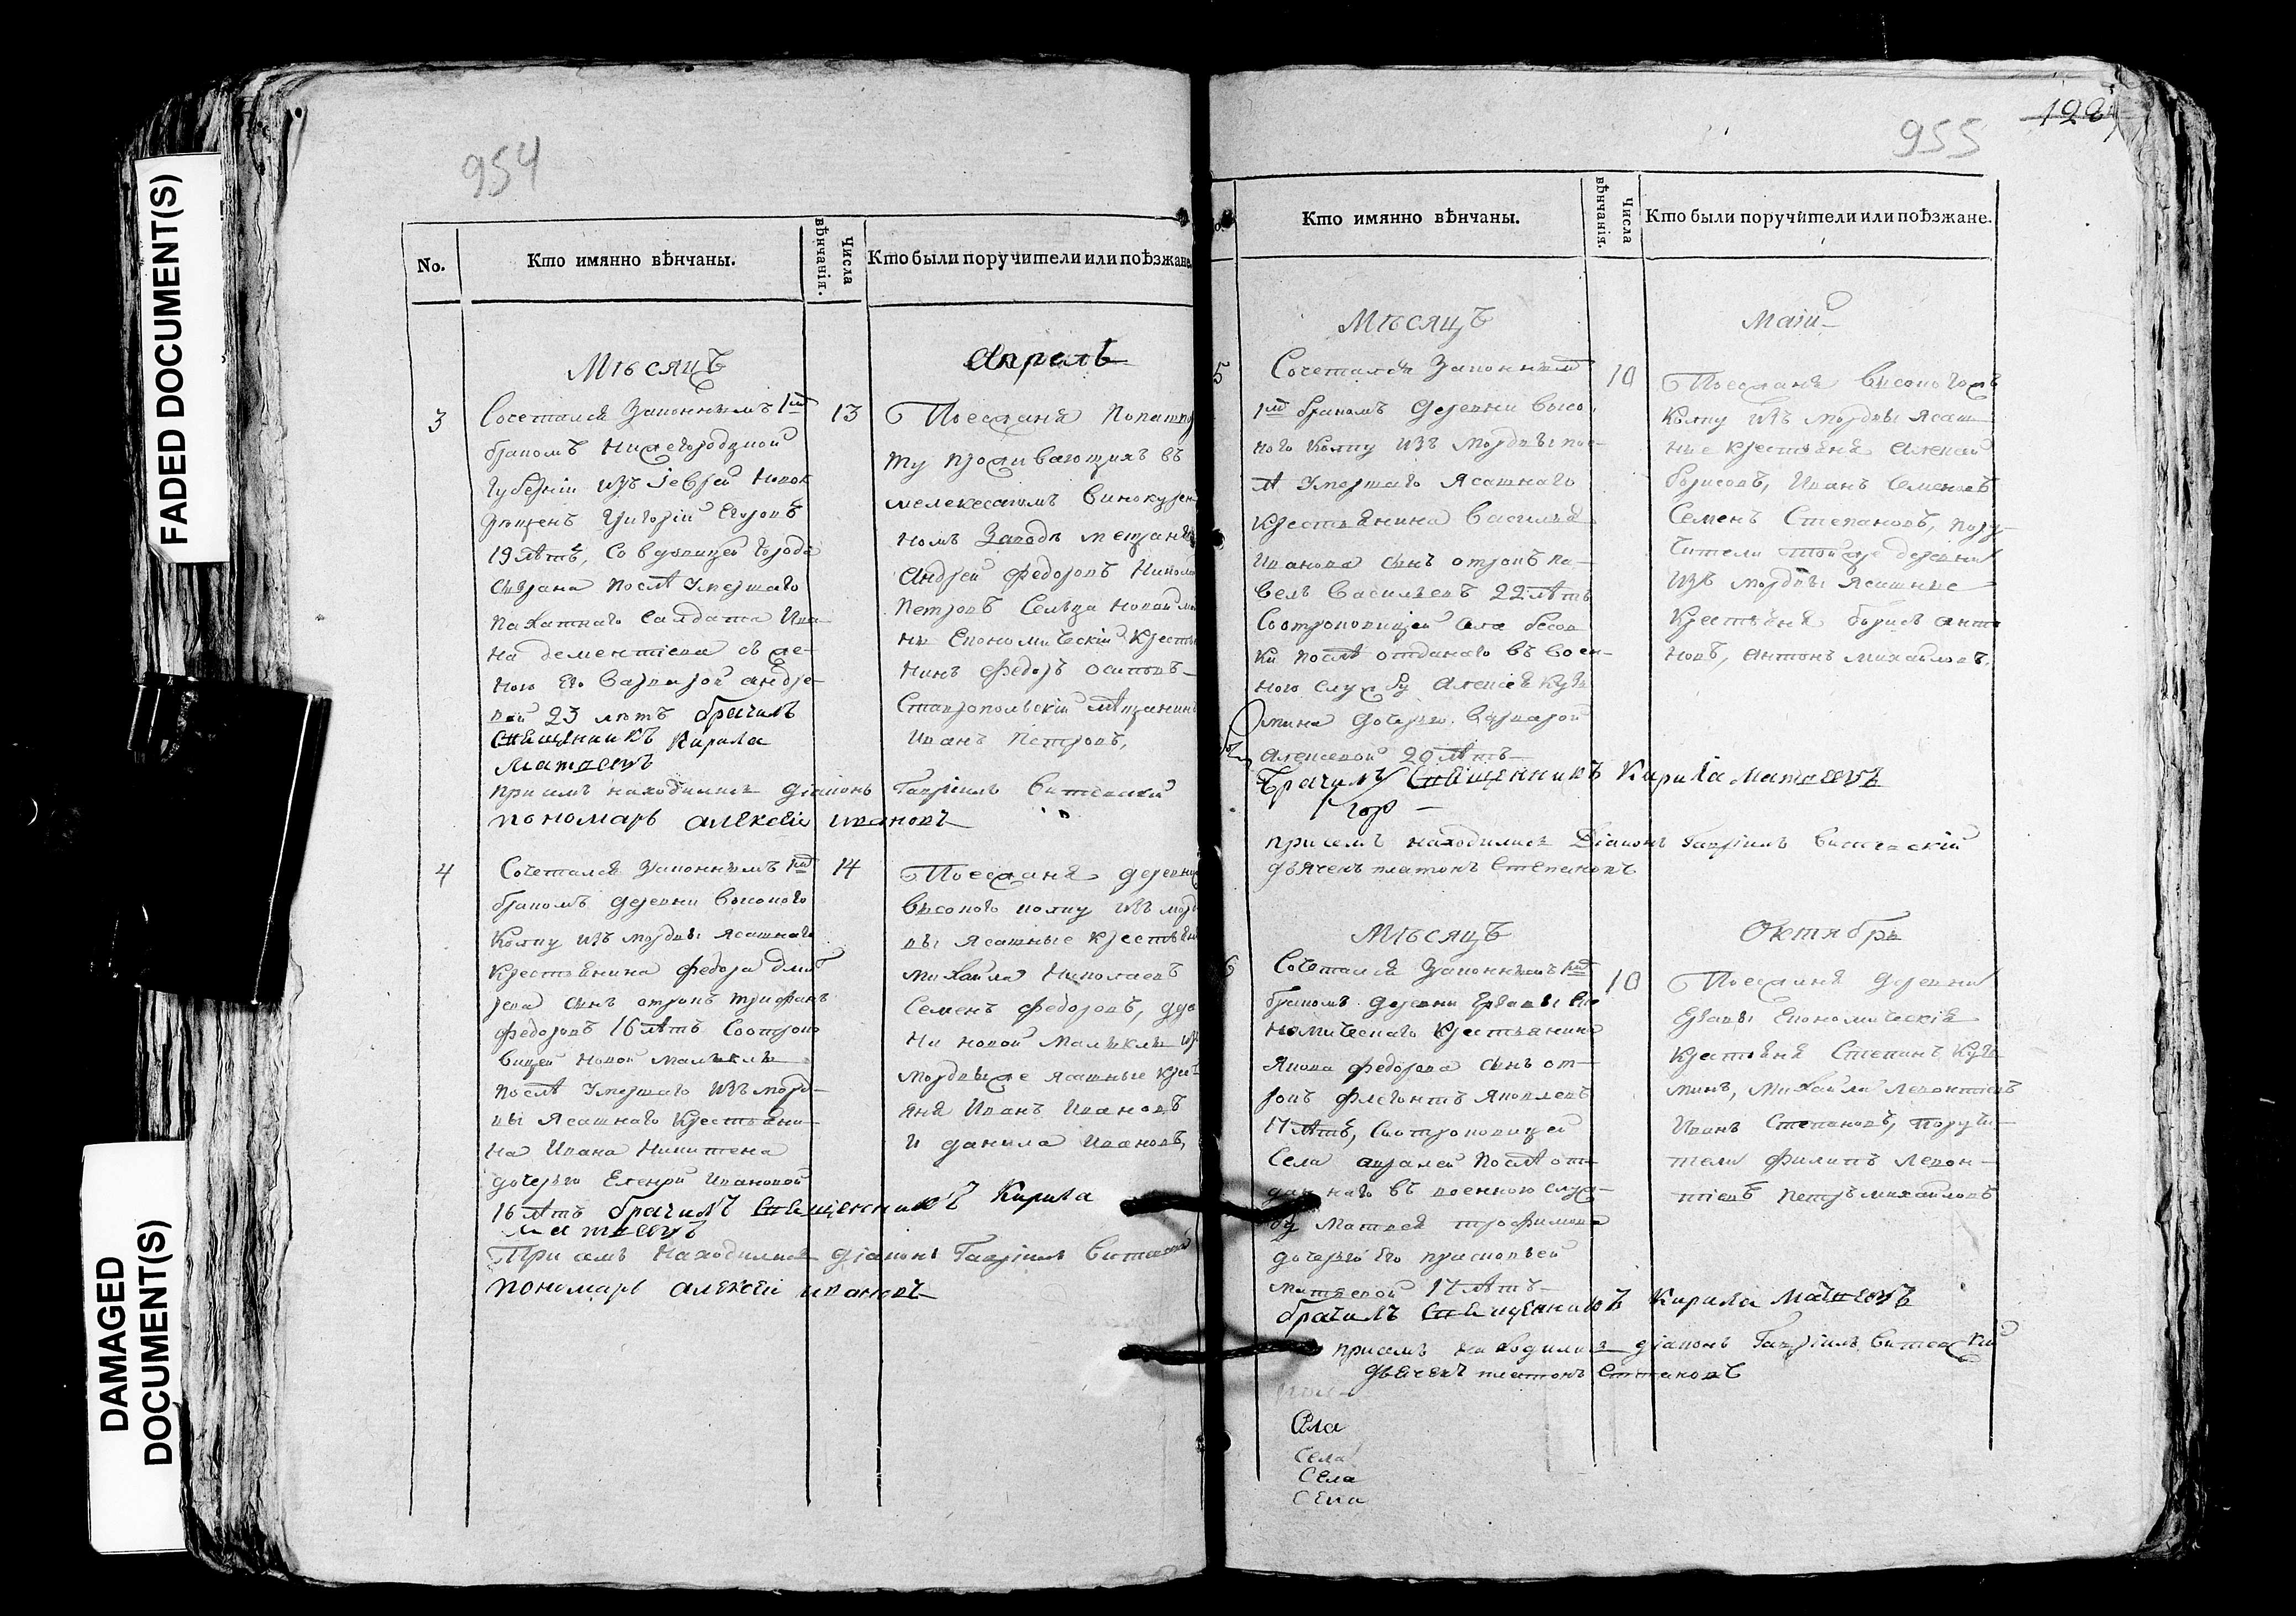 FADED DOCUMENT(S)
DAMAGED
DOCUMENT(S)
954
No.
Кто имянно вѣнчаны.
Числа
вѣнчанія.
Кто были поручители или поѣзжане
Мѣсяцъ
Апрель
3
Сочетался Законнымъ 1м
бракомъ Нижегородцкой
Губерніи изъ
Григорій Егоровъ
19 лѣтъ, Со вдовицей города
Сызрана послѣ умершаго
Пахатнаго Салдата Ива
на дементіева съ же-
ною Его варварой андре-
вой 23 лѣтъ брачилъ
Священникъ Кирила
Матвеевъ
13
Поезжаня
ту проживающихъ въ
мелекесскомъ винокурен
номъ Заводѣ мещаня
Андрей Федоровъ Никола
Петровъ Сельца Новой
Економическій Кресть
нинъ Федоръ осиповъ
Ставропольскій мѣщанинъ
Иванъ Петровъ,
при семъ находилися діаконъ Гавріилъ
пономарь алексей ивановъ
4
Сочетался Законнымъ 1м
бракомъ деревни высокого
Колку изъ мордвы ясашнаго
крестьянина Федора дмит
рева сынъ отрокъ трифанъ
Федоровъ 16 лѣтъ Соотроко
вицей Новой Малыклы
послѣ умершаго изъ морд-
вы Ясашнаго Крестьяни
на Ивана Никитена
дочерью Ивановой
16 лѣтъ брачилъ Священникъ Кирила
Матвеевъ
14
Поезжаня деревни
Высокого колку изъ морд
вы Ясашные крестьян
михайла Николаевъ
Семенъ Федоровъ, дере
ни новой Малыклы изъ
мордвыже ясашные крес
яня Иванъ Ивановъ
и данила Ивановъ,
При семъ Находилися діаконъ Гавріилъ
пономарь алексей ивановъ
955
Кто имянно вѣнчаны.
Числа
вѣнчанія.
Кто были поручители или поѣзжане.
Мѣсяцъ
Маій
5
Сочетался Законным
1м бракомъ деревни высо
кого Колку изъ мордвы пос
лѣ умершаго Ясашнаго
крестьянина Василья
Иванова сынъ отрокъ па-
велъ Васильевъ 22 лѣтъ
Соотроковицей
ки послѣ отданаго въ воен-
ною службу Алексея Кузь
мина дочерью варварой
алексевой 20 лѣтъ
10
Поезжаня высокого
Колку изъ мордвы Ясаш
ние крестьяня Алексей
борисовъ, Иванъ Семеновъ
Семенъ Степановъ, пору-
чители той же деревни
изъ мордвы Ясашные
Крестьяня борисъ анто
новъ, антонъ михайловъ,
брачилъ Священникъ Кирила Матвеевъ
при семъ находилися Діаконъ Гавріилъ
дьячекъ платонъ Степановъ
Мѣсяцъ
Октябрь
6
Сочетался Законнымъ 1м
бракомъ деревни Ерзавы Еко
номическаго крестьянина
Якова Федорова сынъ от-
рокъ Флегонтъ Яковлевъ
17 лѣтъ, Соотроковицей
Села авралей Послѣ от-
даннаго въ военною служ-
бу Матвея трофимова
дочерью Его прасковьей
матвевой 17 лѣтъ
10
Поезжаня деревни
Ерзавы Економическія
крестьяня Степанъ Кузь
минъ, Михайла Леонтіевъ
Иванъ Степановъ, поручи-
тели филипъ Левон-
тіевъ Петръ михайловъ
брачилъ Священникъ Кирила Матвеевъ
присемъ находились діаконъ Гавріилъ
дьячекъ платонъ Степановъ
Села
Села
Села
Села